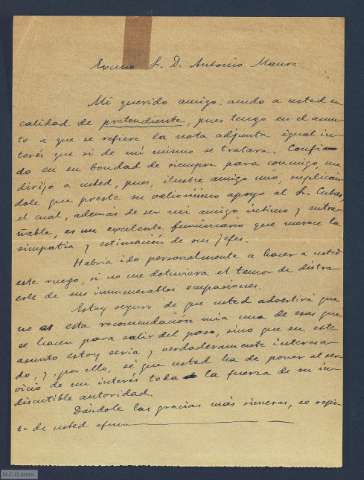 Excmo Sr. D. Antonio Maura
Mi querido amigo: acudo a usted en
calidad de pretendiente, pues tengo en el asun-
to a que se refiere la nota adjunta igual in-
terés que si de mí mismo se tratara. Confia-
do en su bondad de siempre para conmigo, me
dirijo a usted, pues, ilustre amigo mío, suplicán-
dole que preste su valiosísimo apoyo al Sr. Cubas,
el cual, además de ser mi amigo íntimo y entra-
ñable, es un excelente funcionario que merece la
simpatía y estimación de sus jefes.
Habría ido personalmente a hacer a usted
este ruego, si no me detuviera el temor de distra-
erle de sus innumerables ocupaciones.
Estoy seguro de que usted advertirá que
no es esta recomendación mía una de esas que
se hacen para salir del paso, sino que en este
asunto estoy seria y verdaderamente interesa-
do, y por ello, sé que usted ha de poner al ser-
vicio de mi interés toda la fuerza de su in-
discutible autoridad.
Dándole las gracias más sinceras, se repi-
te de usted afmo